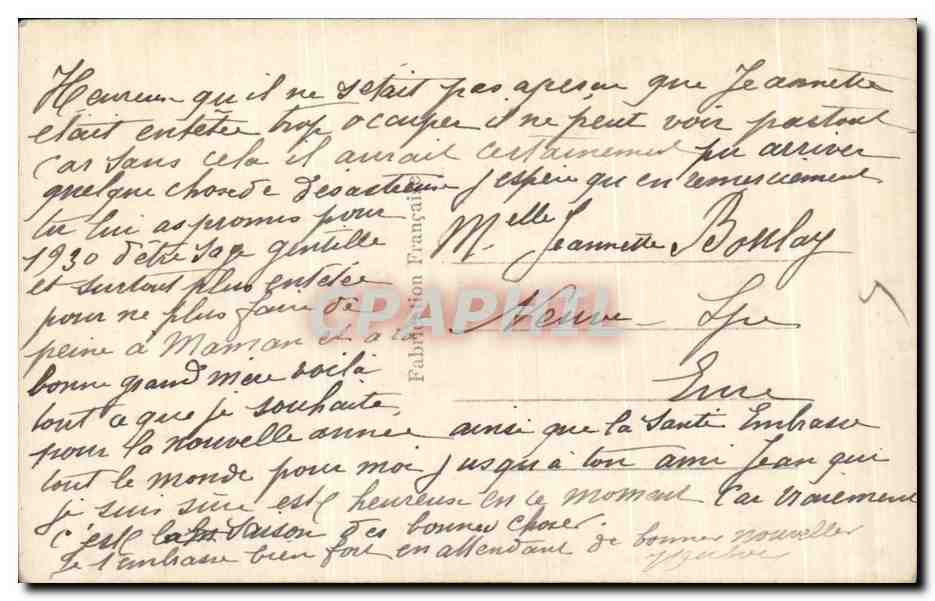 Heureux qu'il ne s'était pas aperçu que Jeannette
était entêtée trop occuper il ne peut voir partout
Car sans cela il aurait certainement pu arriver
quelque chose de désastreuse j'espère qu'en remerciement
tu lui as promis pour
1930 d'être sage gentille
et surtout plus entêtée
pour ne plus faire de
peine à Maman et à la
bonne grand mère voilà
tout ce que je souhaite
pour la nouvelle année ainsi que la Santé Embrasse
tout le monde pour moi jusqu'à ton ami Jean qui
je suis sûre est heureuse en ce moment Car vraiement
c'est la Saison des bonnes choses.
Je t'embrasse bien fort en attendant de bonnes nouvelles
Melle Jeannette Boulay
Neuve - Lyre
Eure
Fabrication Française
CPAPHIL